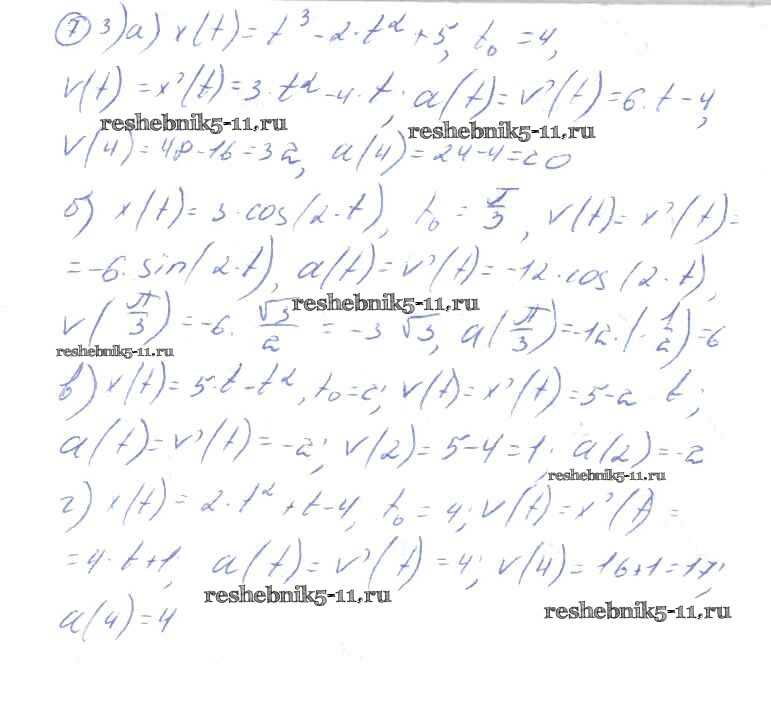 ⑦ 3) а) x(t) = t³ - 2·t² + 5, t₀ = 4,
v(t) = x'(t) = 3·t² - 4·t, a(t) = v'(t) = 6·t - 4,
reshebnik5-11.ru reshebnik5-11.ru
v(4) = 48 - 16 = 32, a(4) = 24 - 4 = 20
б) x(t) = 3·cos(2·t), t₀ = π/3, v(t) = x'(t) =
= -6·sin(2·t), a(t) = v'(t) = -12·cos(2·t),
reshebnik5-11.ru
v(π/3) = -6·√3/2 = -3√3, a(π/3) = -12·(-1/2) = 6
reshebnik5-11.ru
в) x(t) = 5·t - t², t₀ = 2; v(t) = x'(t) = 5 - 2 t;
a(t) = v'(t) = -2; v(2) = 5 - 4 = 1; a(2) = -2
reshebnik5-11.ru
г) x(t) = 2·t² + t - 4, t₀ = 4; v(t) = x'(t) =
= 4·t + 1; a(t) = v'(t) = 4; v(4) = 16 + 1 = 17;
reshebnik5-11.ru reshebnik5-11.ru
a(4) = 4